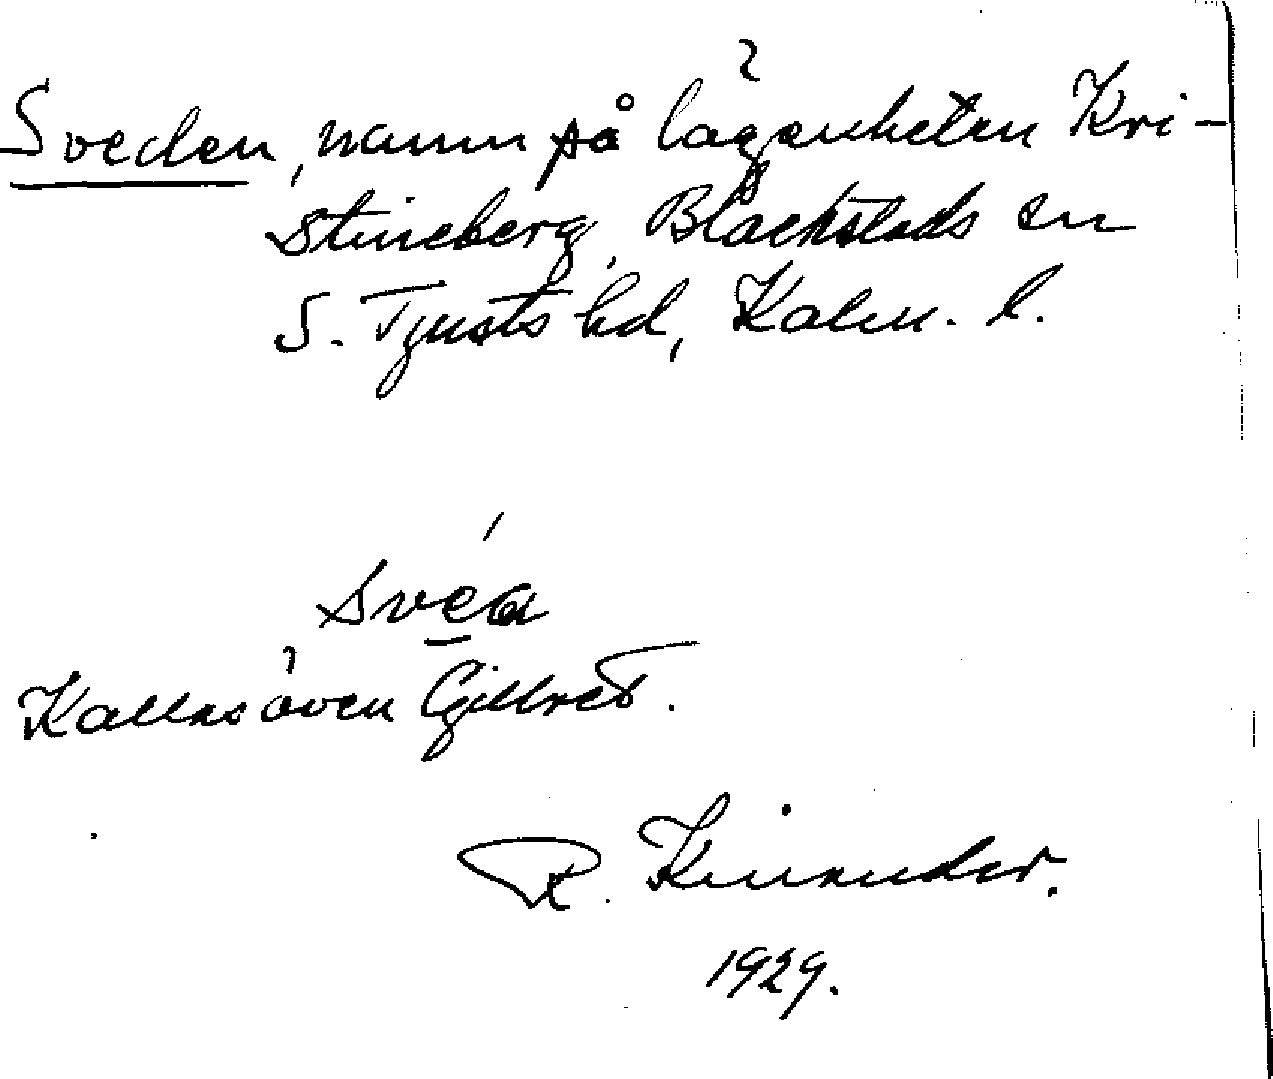 Sveden, namn på lägenheten Kri-
stineberg, Blackstads sn
S. Tjusts hd, Kalm. l.
Svéa
Kallas även Gillret.
R. Kinander.
1929.